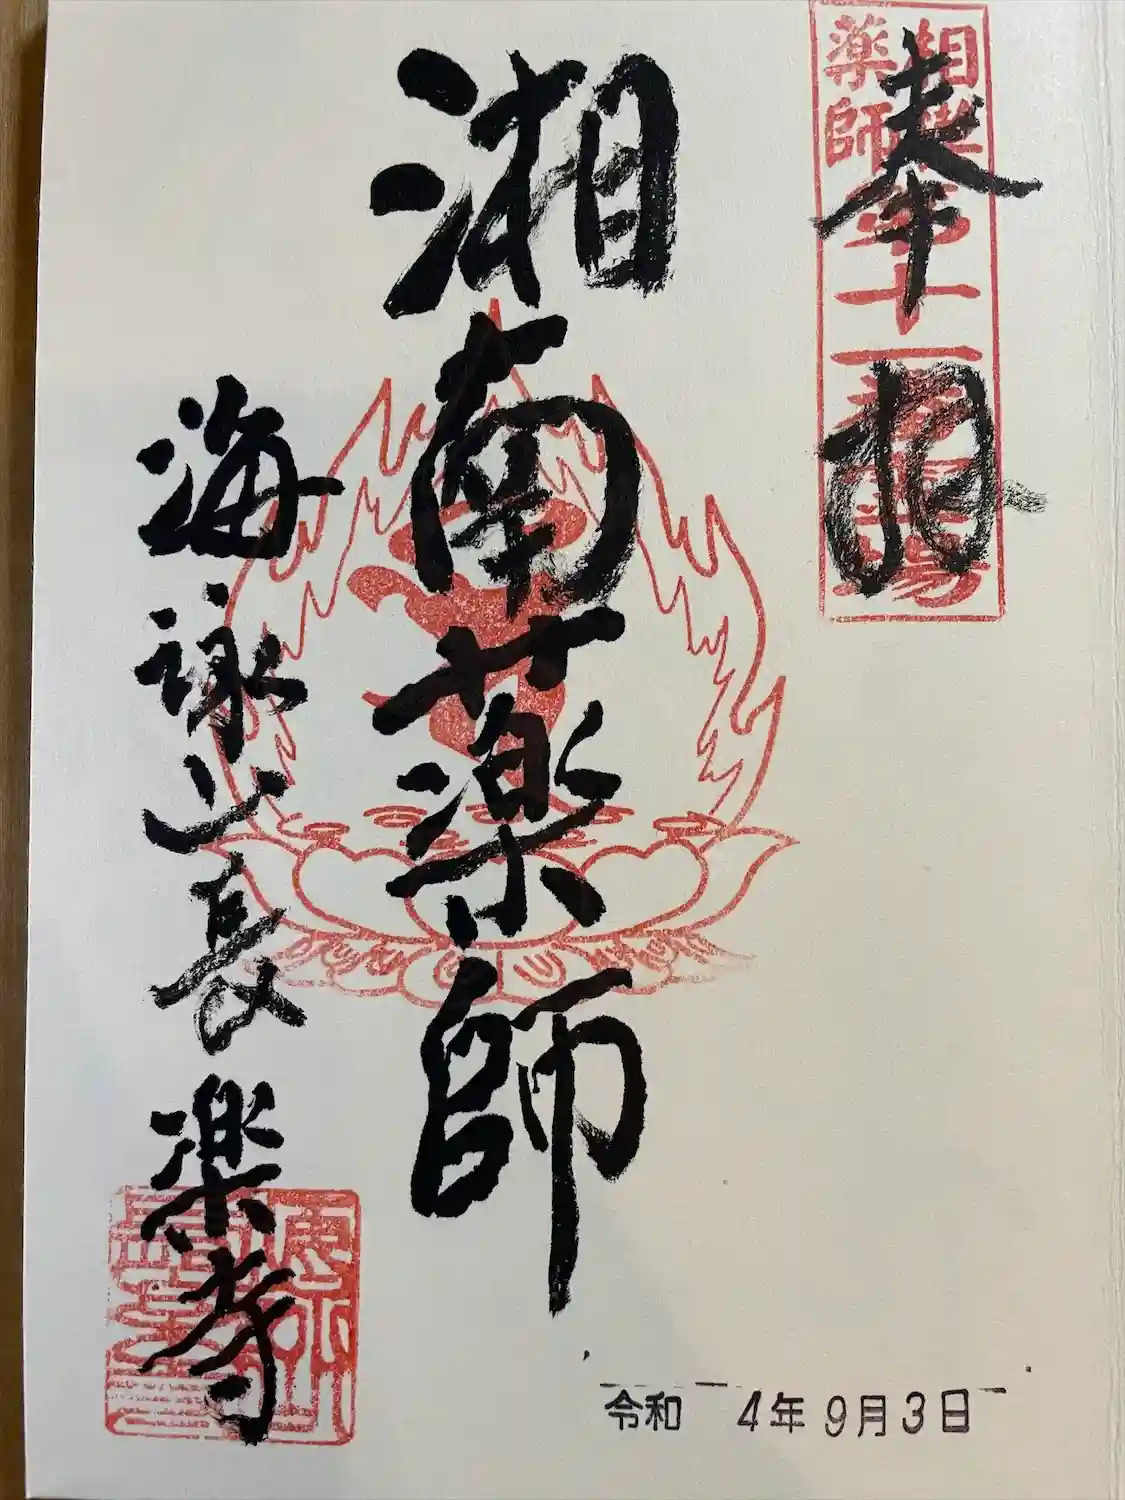 奉拝
薬師
十一番霊場
湘南薬師
海詠山長楽寺
令和 4年9月3日